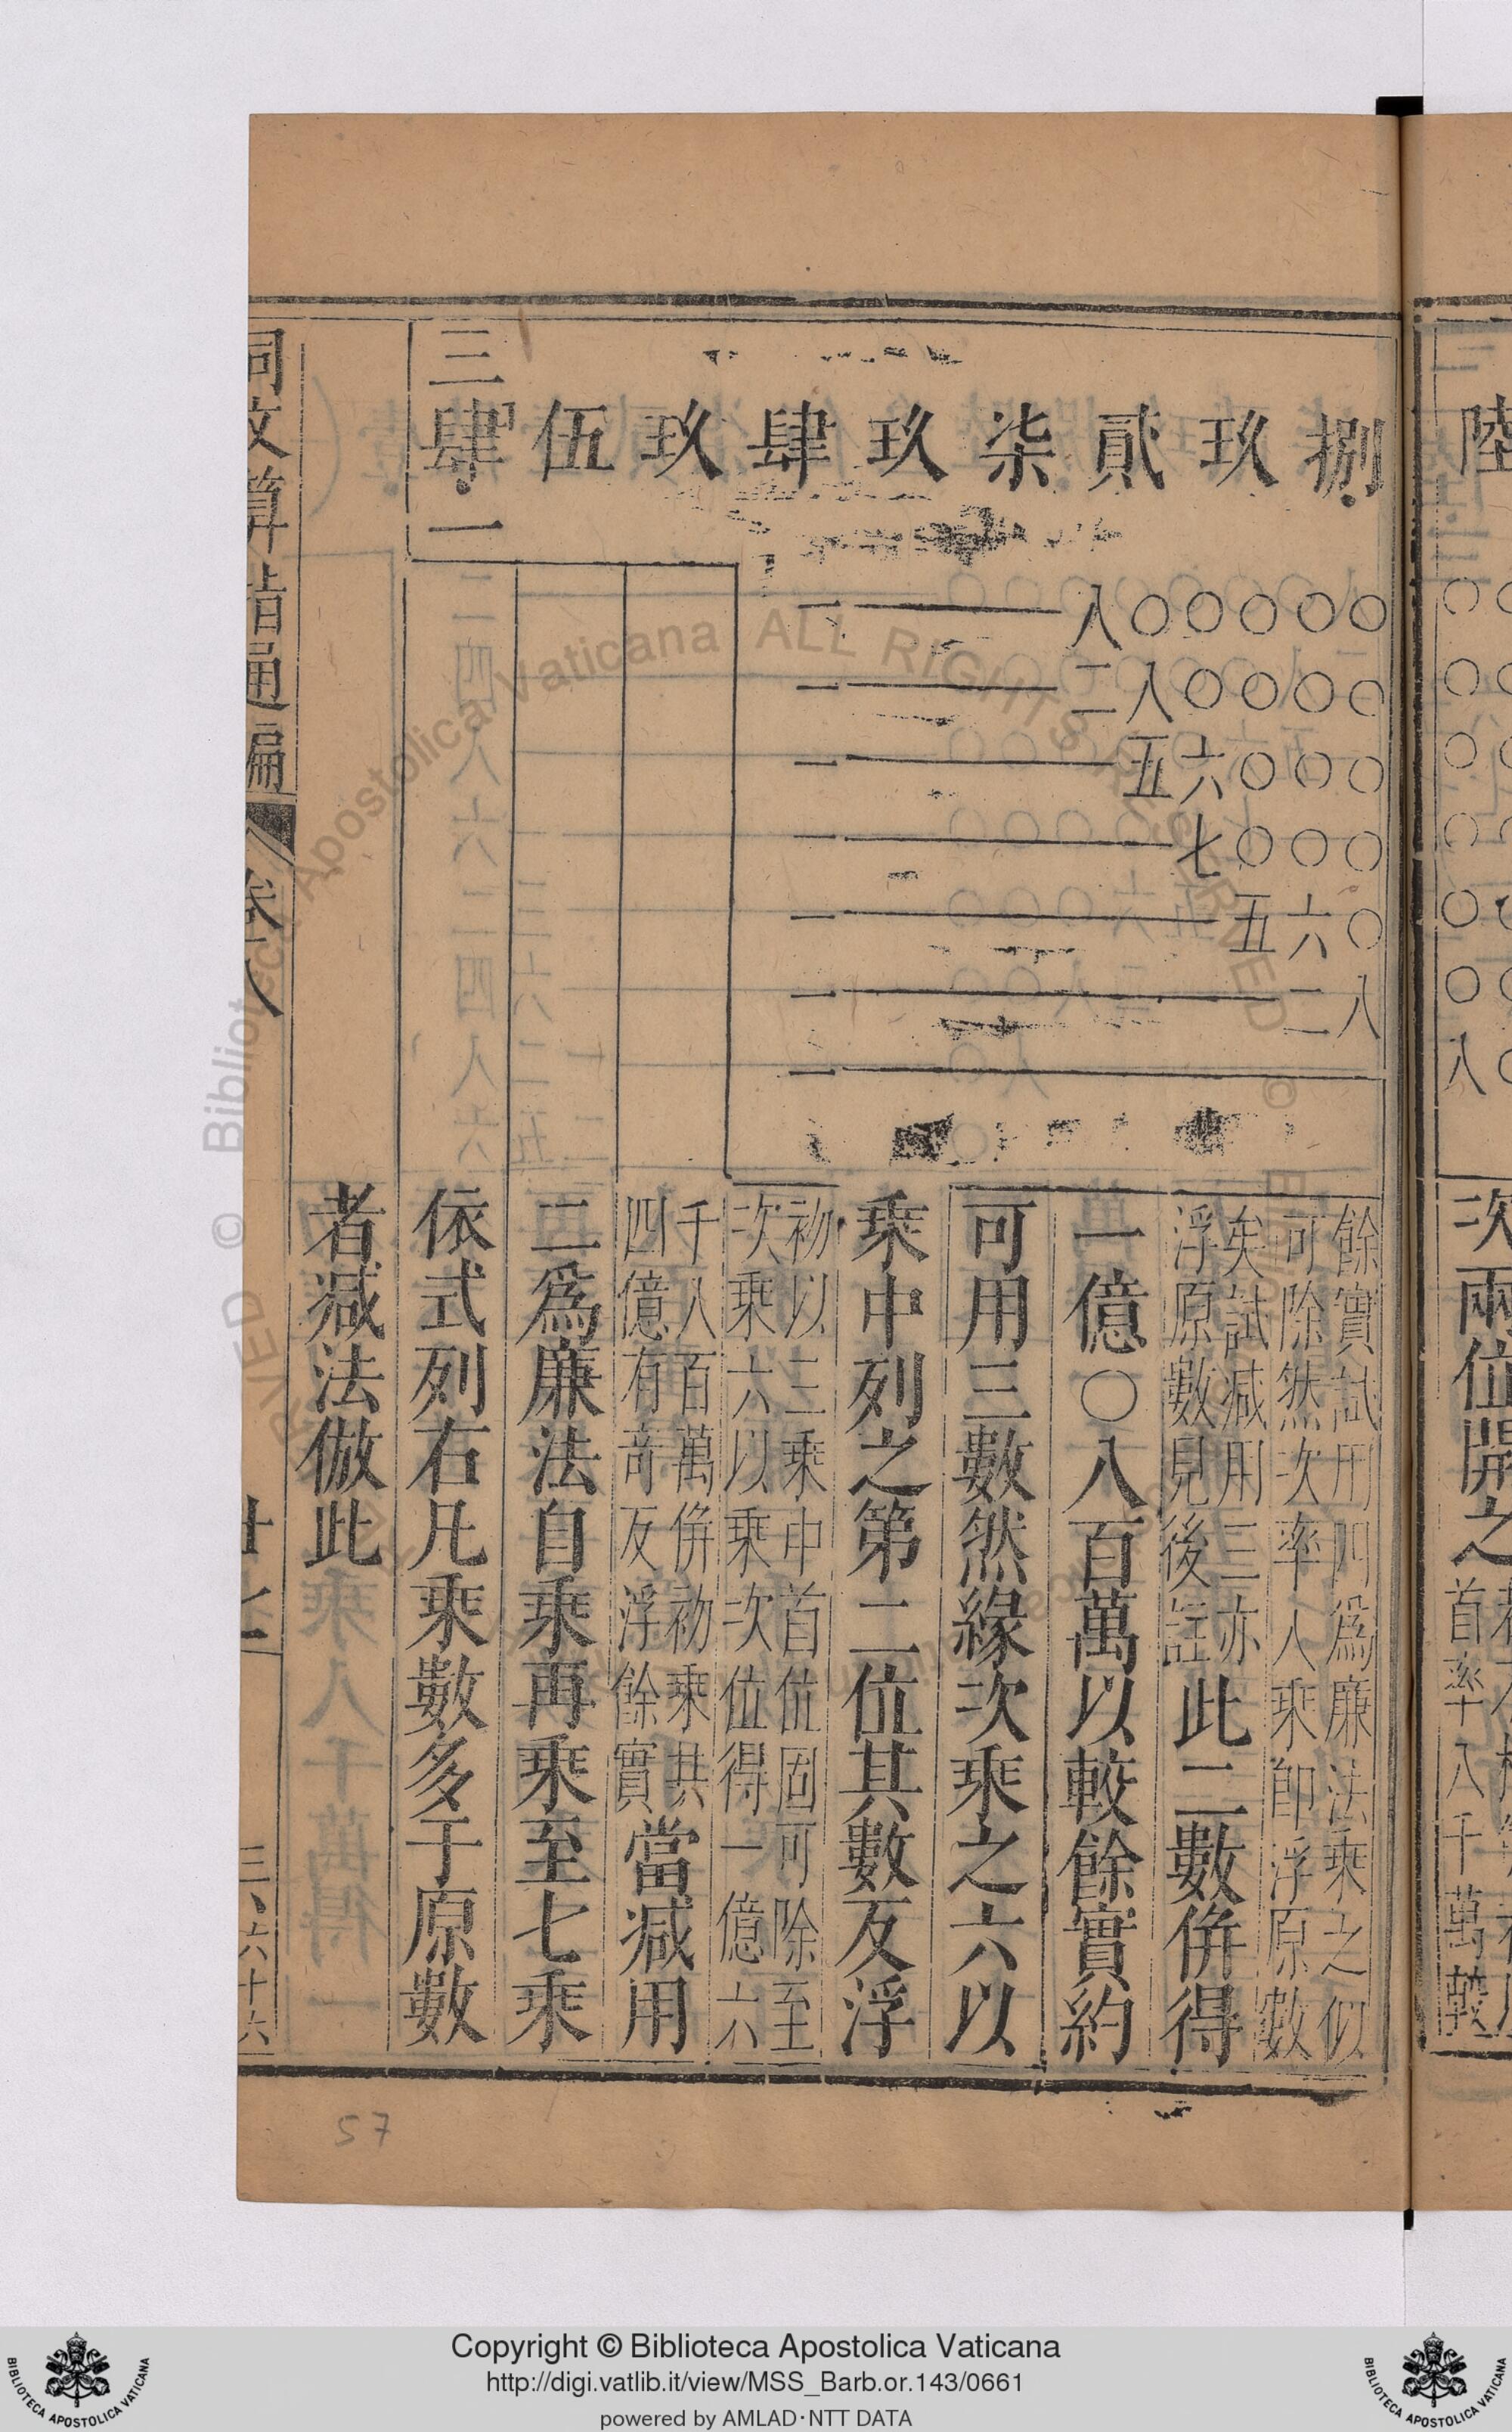 三
肆伍玖肆玖柒貳玖捌
一
一八〇〇〇〇〇
一二八〇〇〇〇
一五六〇〇〇
一七〇〇〇
一五六〇
一二八
一
餘實試用四爲廉法乘之似
可除然次率八乘即浮原數
矣試減用三亦
浮原數見後註
此二數併得
一億〇八百萬以較餘實約
可用三數然緣次乘之六以
乘中列之第二位其數反浮
初以三乘中首位固可除至
次乘六以乘次位得一億六
千八百萬併初乘共
四億有奇反浮餘實
當減用
二爲廉法自乘再乘至七乘
依式列右凡乘數多于原數
者減法倣此
同文算指通編 卷八 十七 三、六十六
陸
〇〇
〇〇
〇〇
〇〇
〇〇
〇〇
八〇
次兩位開之
首率八千萬
57
© Biblioteca Apostolica Vaticana ALL RIGHTS RESERVED ©
Copyright © Biblioteca Apostolica Vaticana
http://digi.vatlib.it/view/MSS_Barb.or.143/0661
powered by AMLAD·NTT DATA
BIBLIOTECA APOSTOLICA VATICANA
BIBLIOTECA APOSTOLICA VATICANA